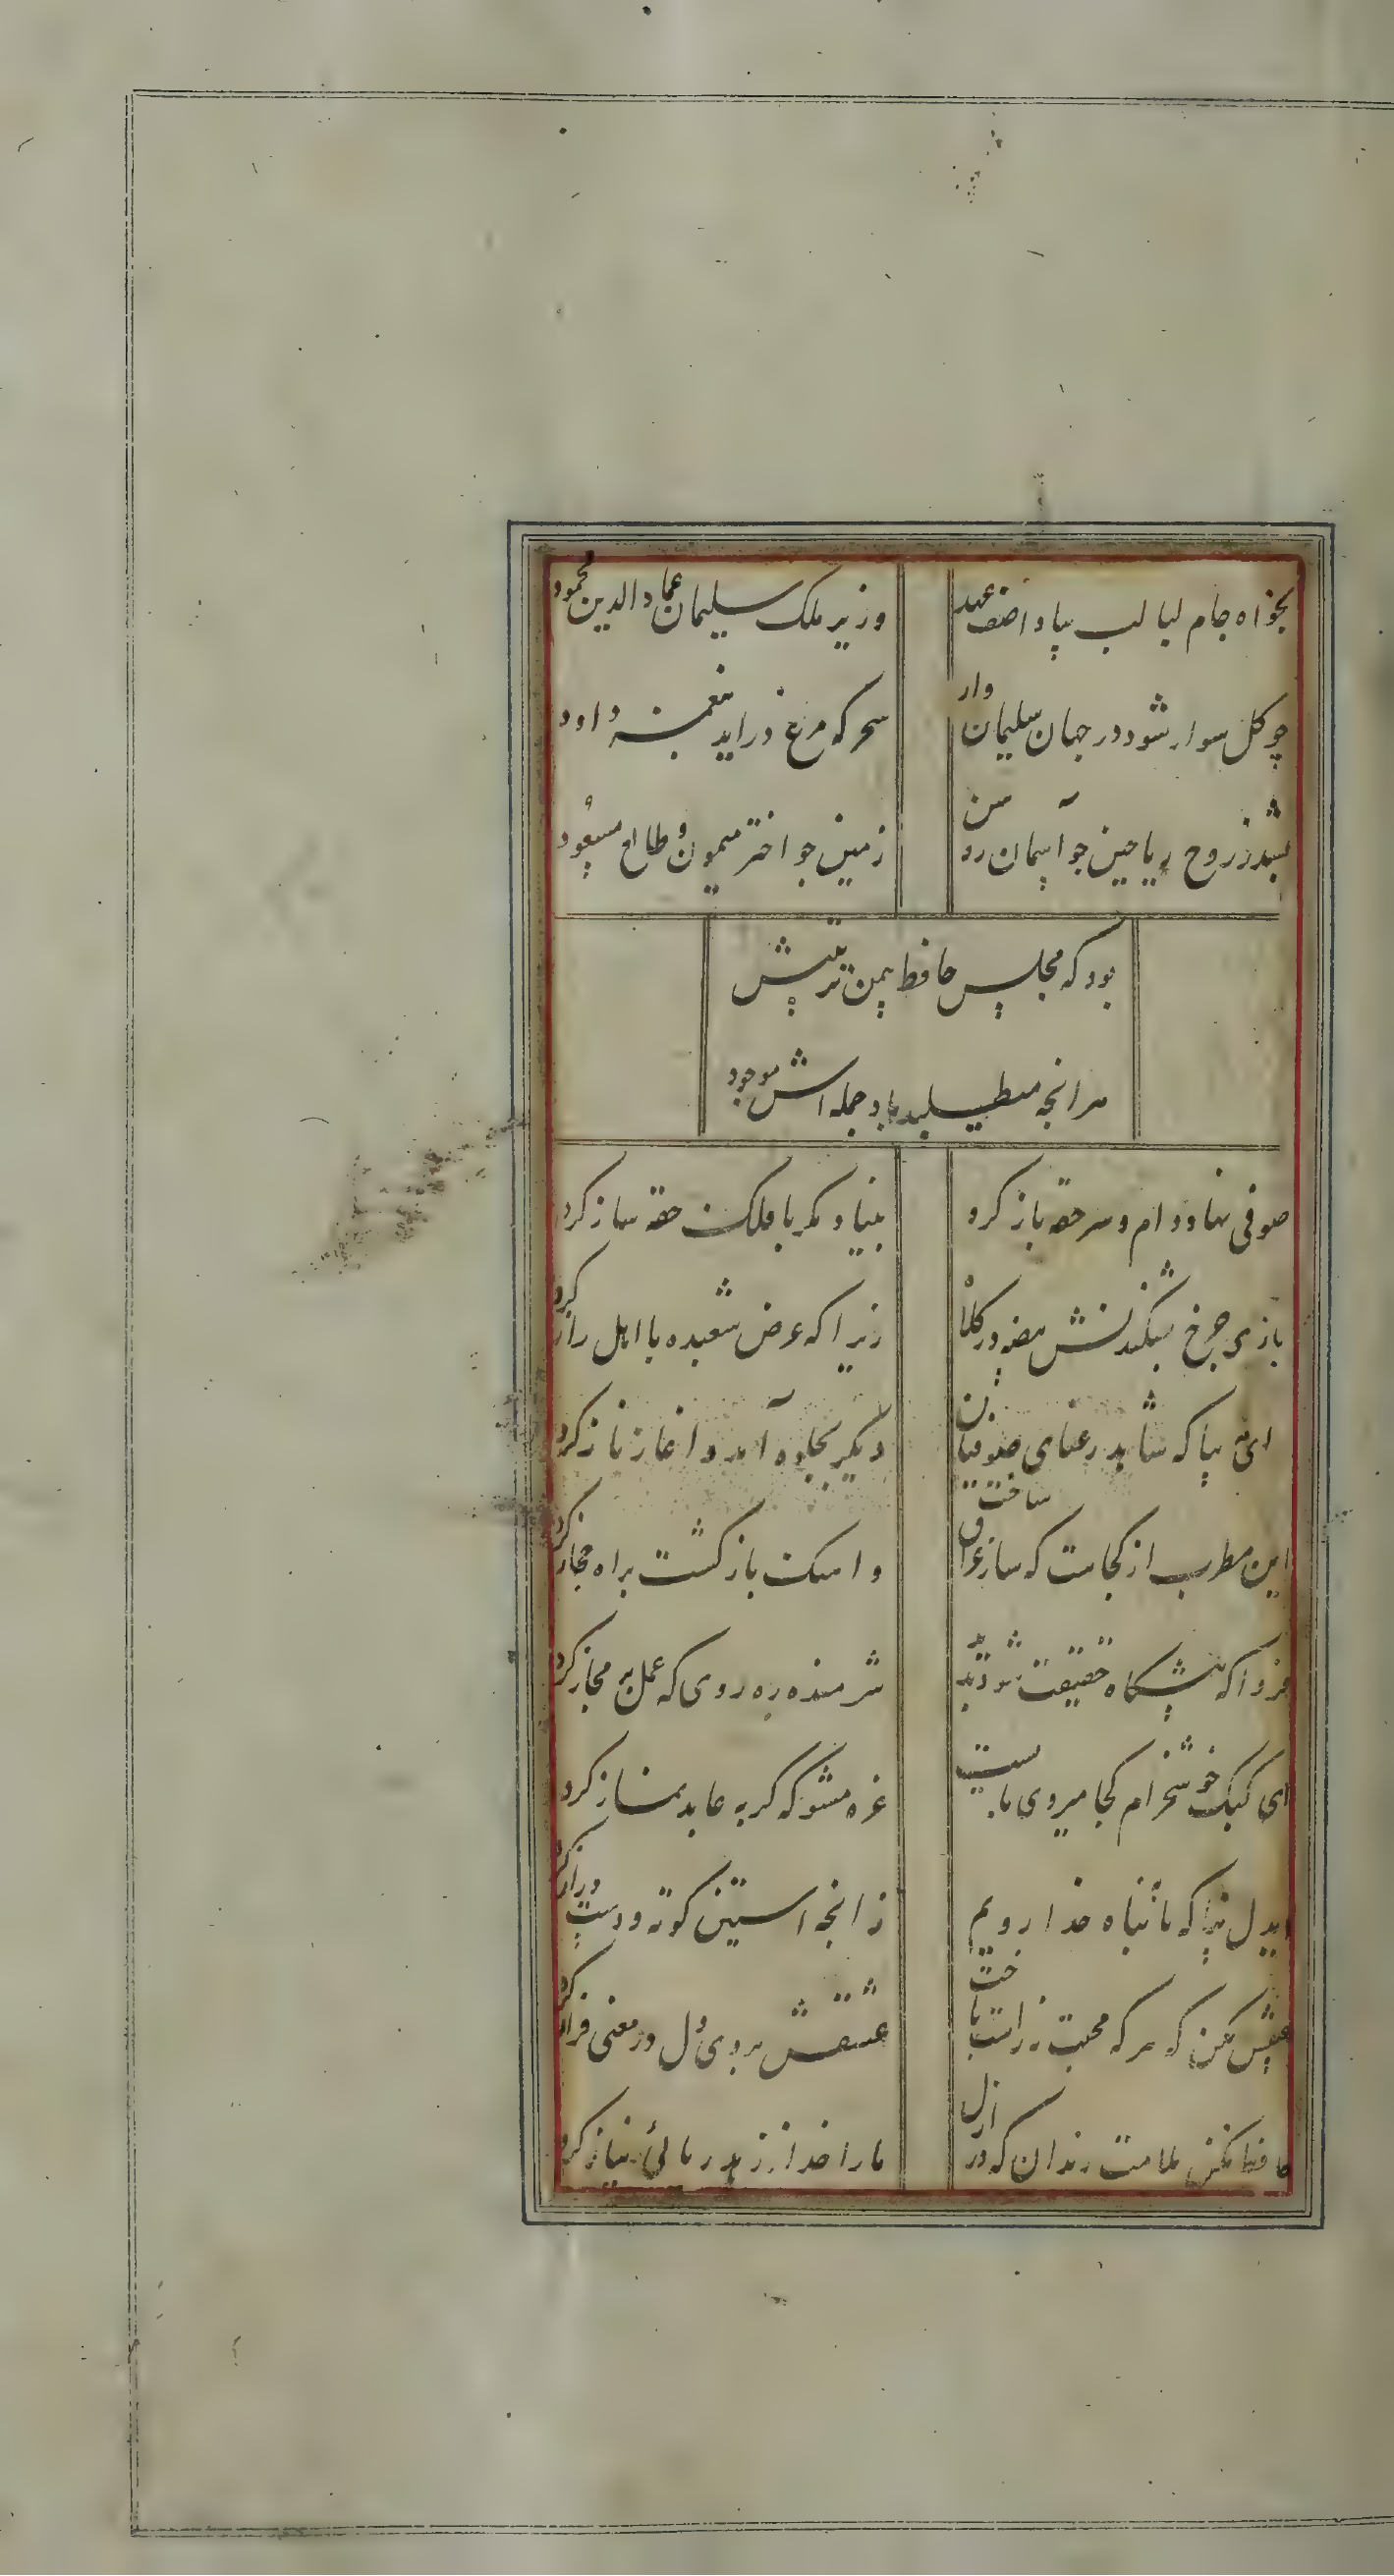 بخواه جام لبالب بیاد اصف عهد وزیر ملک سلیمان عماد الدین محمود
چو کل سوار شود در جهان سلیمان وار سحر که مرغ دراید بنغمه داود
شد ز روح ریاحین جو آسمان روسن زمین جو اختر میمون و طالع مسعود
بود که مجلس حافظ بیمن تربیتش
هر انجه میطلبد باد جمله اش موجود
صوفی نهاد دام و سر حقه باز کرد بنیاد مکر با فلک حقه ساز کرد
بازی چرخ بشکندش بیضه در کلاه زیرا که عرض شعبده با اهل راز کرد
بیا که شاهد رعنای صوفیان دیکر بجلوه آمد و اغاز ناز کرد
این مطرب از کجاست که ساز عراق ساخت واهنک باز کشت براه حجاز کرد
فردا که پیشکاه حقیقت شود پدید شرمنده ره روی که عمل بر مجاز کرد
ای کبک خوشخرام کجا میروی بایست غره مشو که کربه عابد نماز کرد
ایدل بیا که ما بپناه خدا رویم زانجه استین کوته و دست دراز کرد
مکن که هر که محبت نه راست باخت عشقش بروی دل در معنی فراز کرد
حافظ مکن ملامت رندان که در ازل ما را خدا ز زهد ریائی نیاز کرد